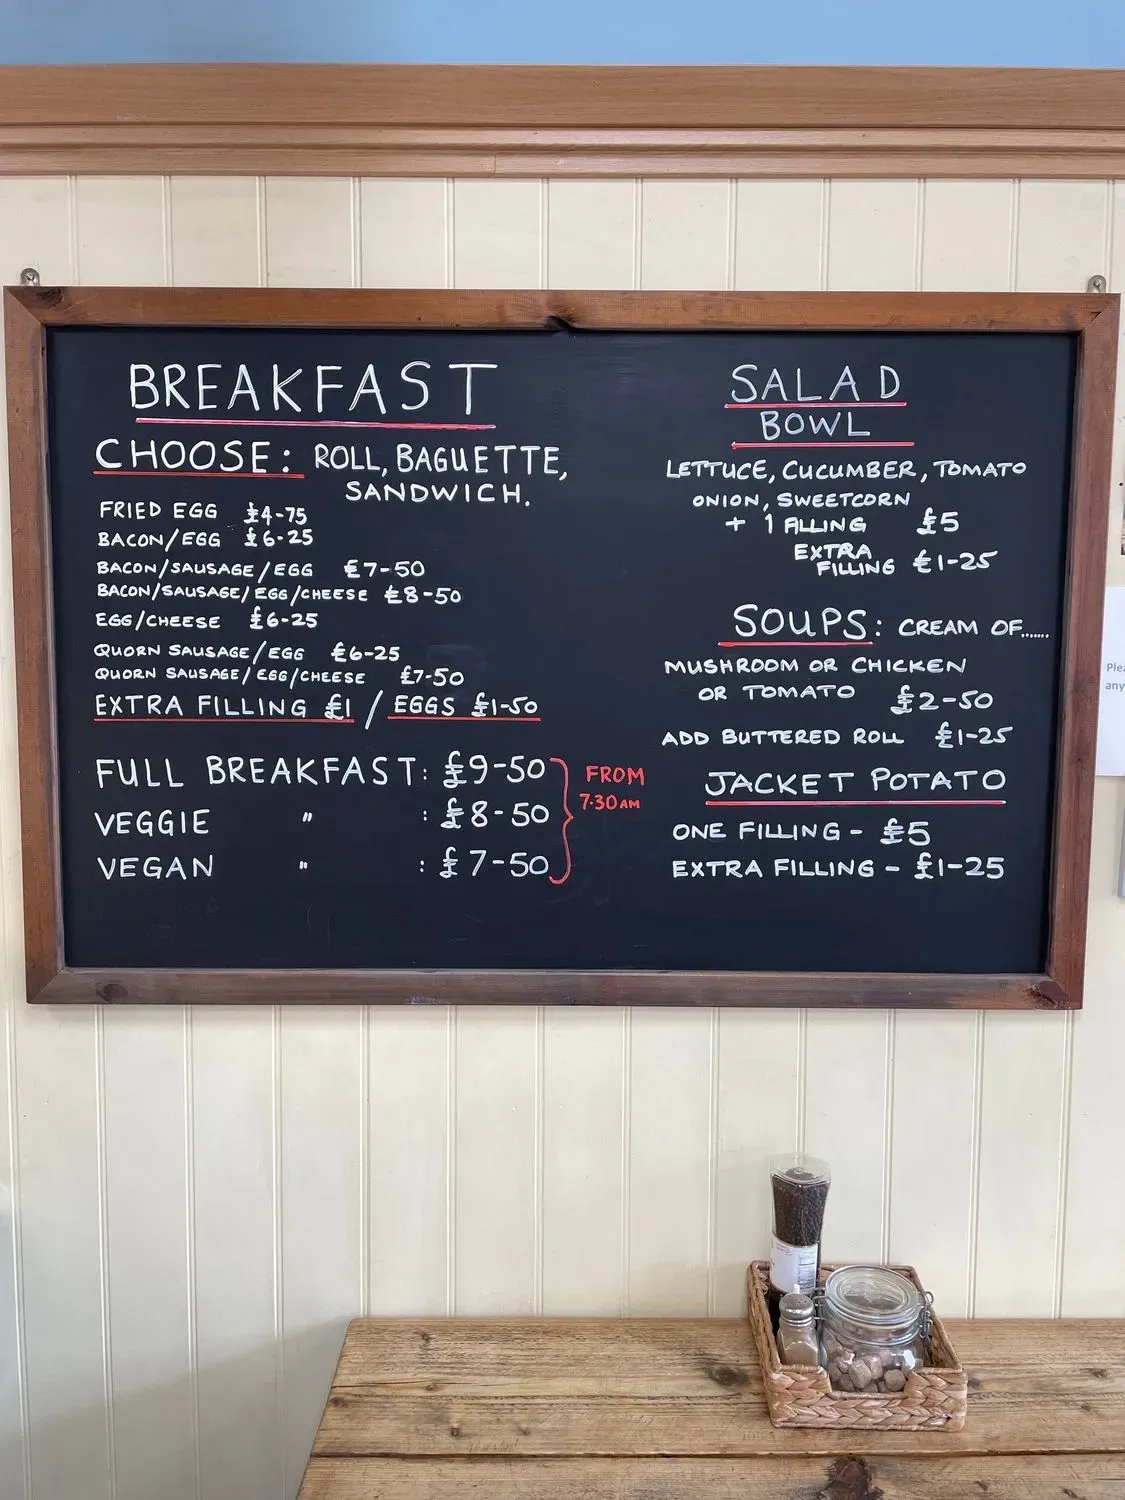 BREAKFAST
CHOOSE: ROLL, BAGUETTE,
SANDWICH.
FRIED EGG £4-75
BACON/EGG £6-25
BACON/SAUSAGE/EGG £7-50
BACON/SAUSAGE/EGG/CHEESE £8-50
EGG/CHEESE £6-25
QUORN SAUSAGE/EGG £6-25
QUORN SAUSAGE/EGG/CHEESE £7-50
EXTRA FILLING £1 / EGGS £1-50
FULL BREAKFAST: £9-50
VEGGIE " : £8-50
VEGAN " : £7-50
FROM
7·30AM
SALAD
BOWL
LETTUCE, CUCUMBER, TOMATO
ONION, SWEETCORN
+ 1 FILLING £5
EXTRA
FILLING £1-25
SOUPS: CREAM OF.......
MUSHROOM OR CHICKEN
OR TOMATO £2-50
ADD BUTTERED ROLL £1-25
JACKET POTATO
ONE FILLING - £5
EXTRA FILLING - £1-25
any